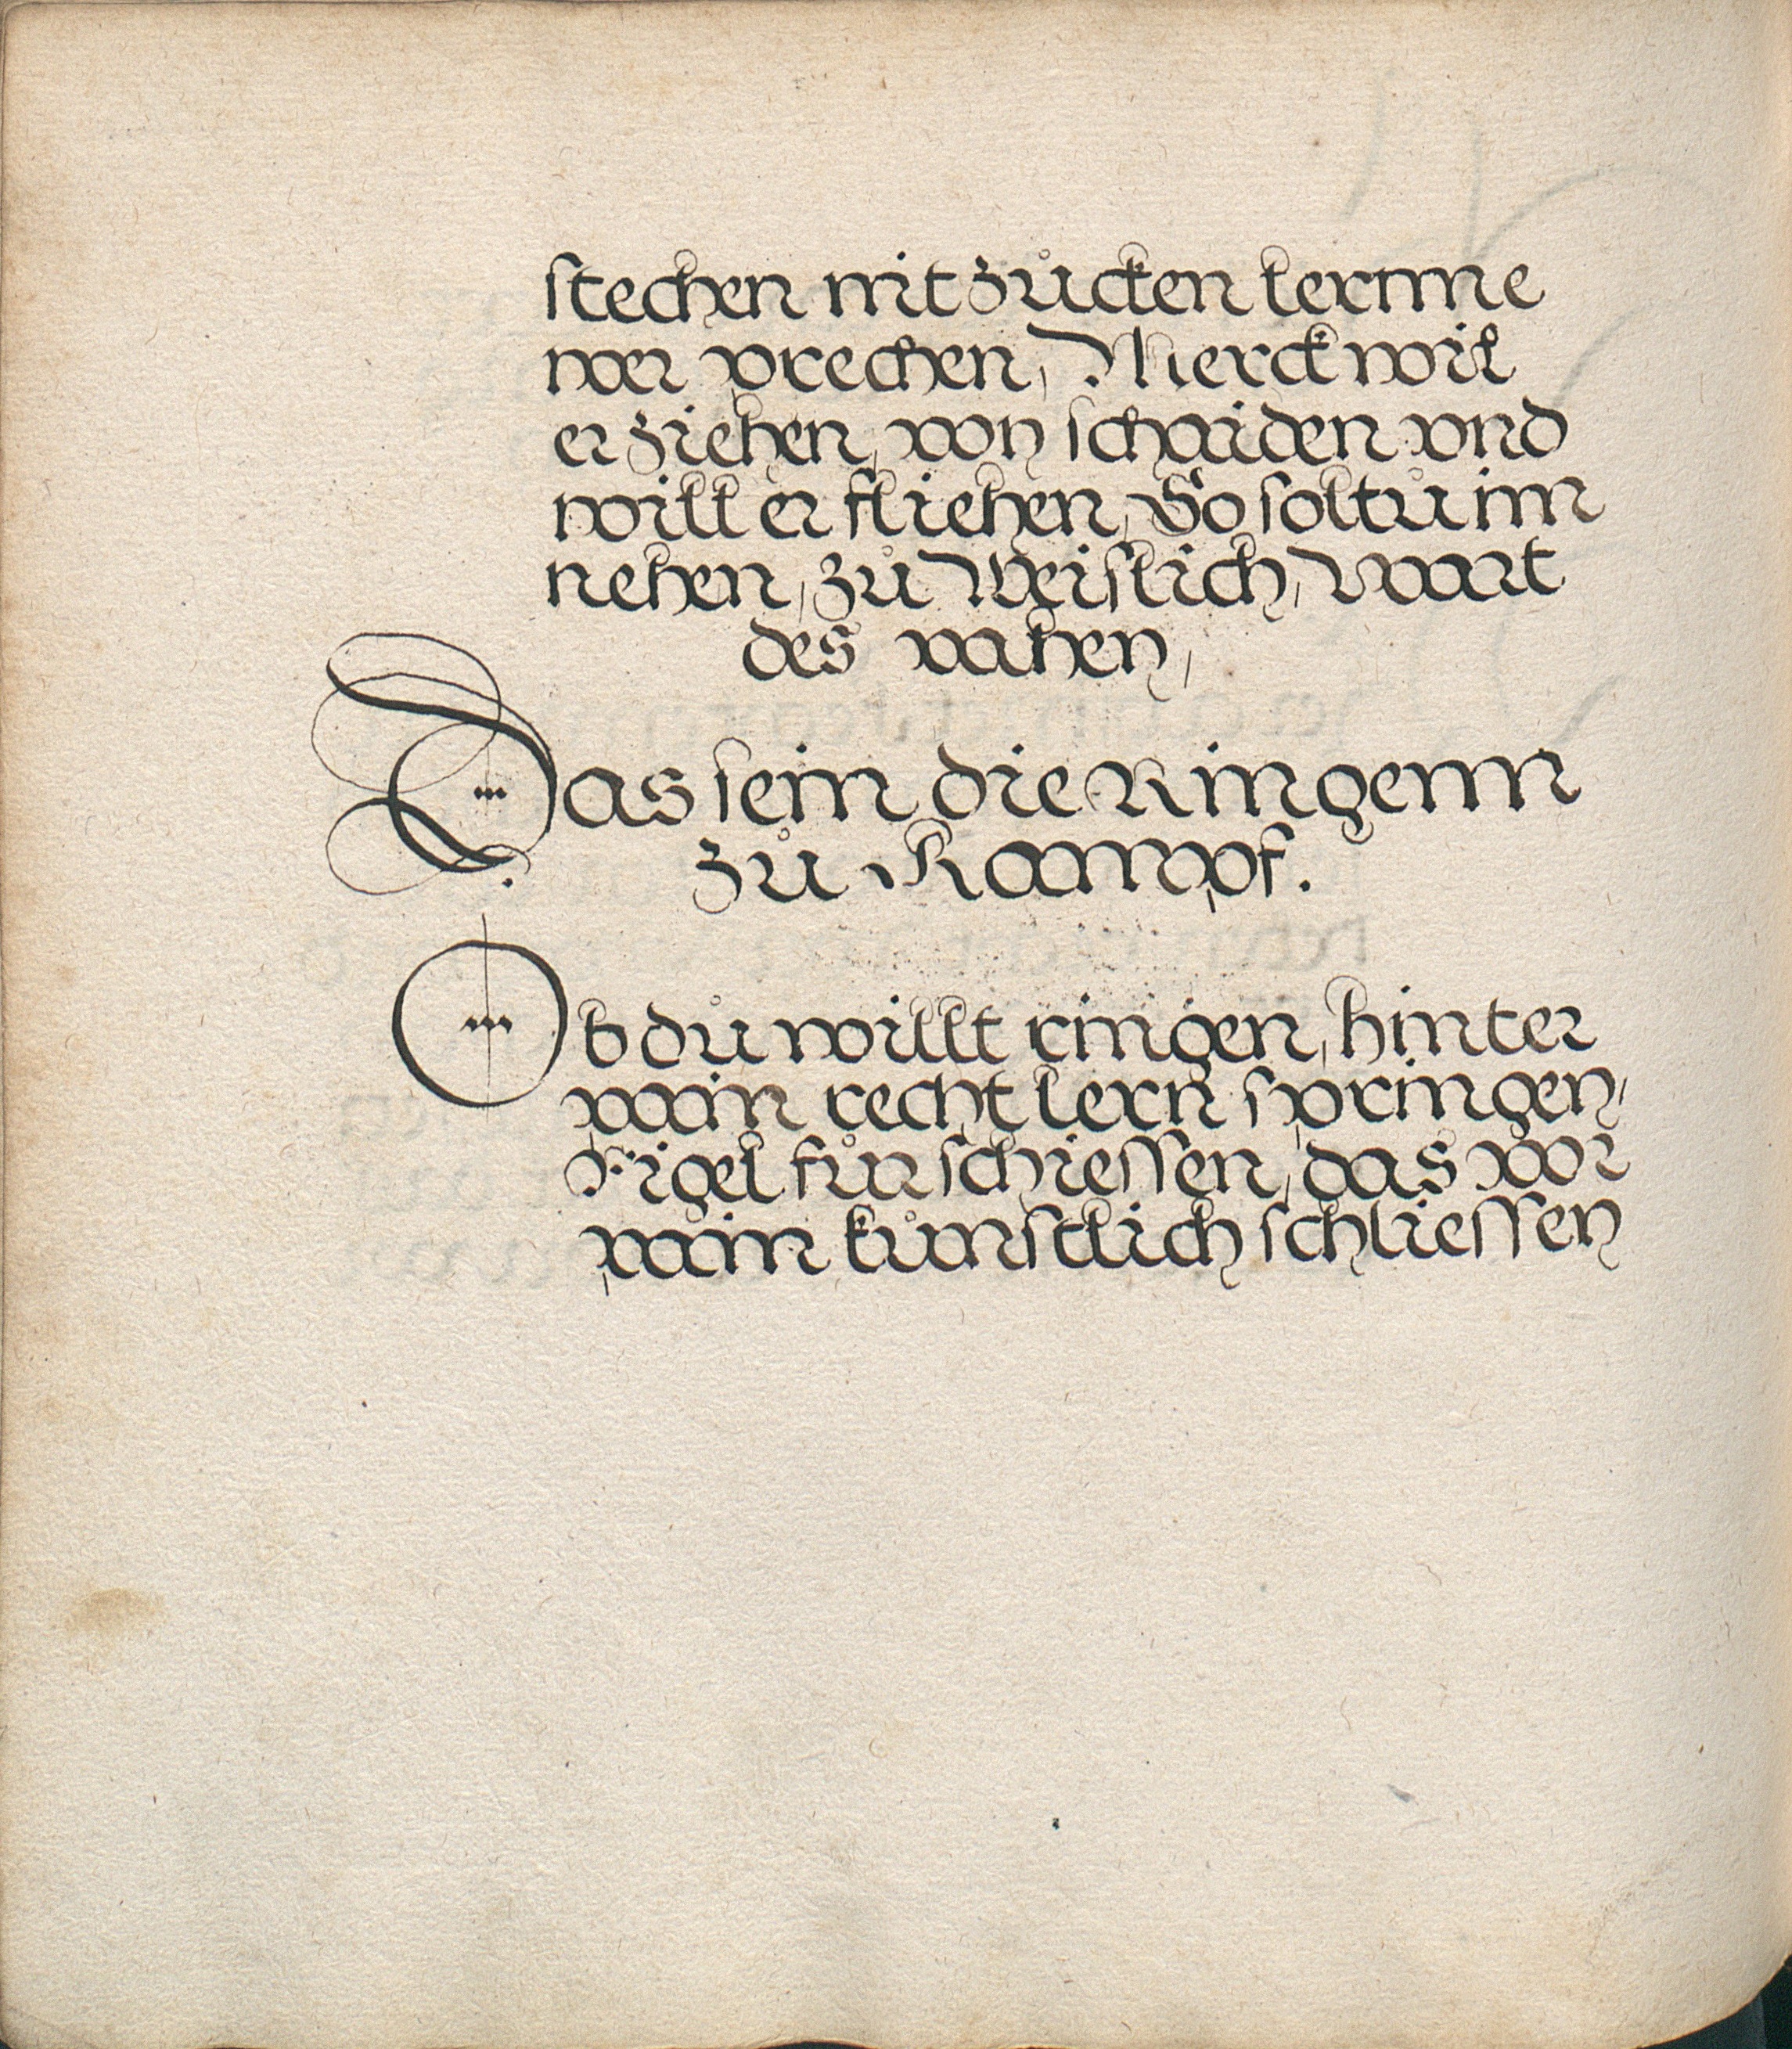 ſtechen mit zůcken lernne
wer prechen, Merck wil
er ziehen, von ſchaiden vnd
will er fliehen, So ſoltů im
nehen, zů Weiſlich, wart
des vahen,
Das ſein die Ringenn
zů Kampf.
Ob dů willt ringen, hinter
pain recht lern ſpringen,
Rigel fůr ſchieſſen, das vor
pain kůnſtlich ſchlieſſen